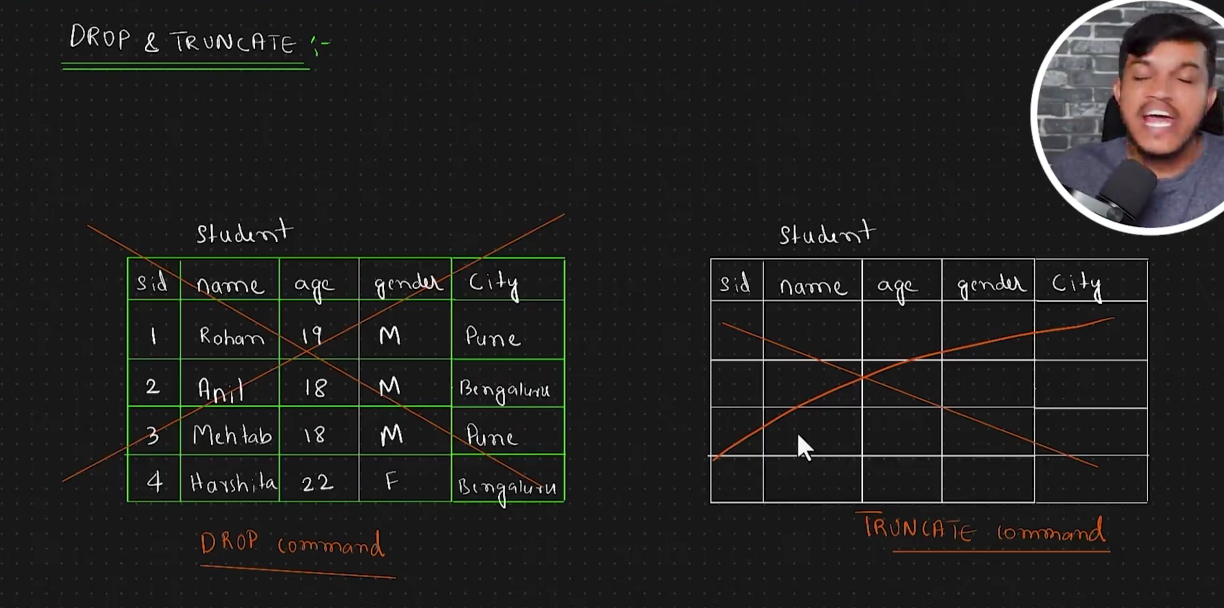 DROP & TRUNCATE :-
Student
sid name age gender City
1 Rohan 19 M Pune
2 Anil 18 M Bengaluru
3 Mehtab 18 M Pune
4 Harshita 22 F Bengaluru
DROP command
Student
sid name age gender City
TRUNCATE command